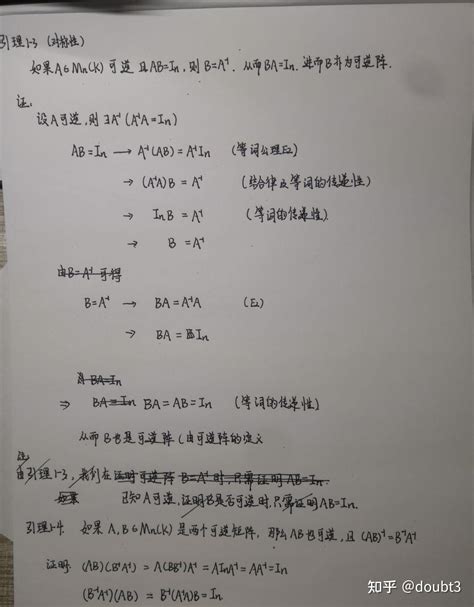 引理1-3 (对称性)
如果A∈Mn(K) 可逆 且AB=In, 则 B=A⁻¹. 从而BA=In. 进而B亦为可逆阵.
证:
设A可逆, 则 ∃A⁻¹ (A⁻¹A=In)
AB=In → A⁻¹(AB) = A⁻¹In (等词公理E2)
→ (A⁻¹A)B = A⁻¹ (结合律及等词的传递性)
→ InB = A⁻¹ (等词的传递性)
→ B = A⁻¹
由B=A⁻¹ 可得
B=A⁻¹ → BA = A⁻¹A (E2)
→ BA = In
BA=In
⇒ BA=In BA=AB=In (等词的传递性)
从而 B也是可逆阵 (由可逆阵的定义
注:
由引理1-3, 我们在证明可逆阵 B=A⁻¹ 时, 只需证明AB=In.
如果 已知A可逆, 证明B是否可逆时, 只需证明AB=In.
引理1-4. 如果 A, B∈Mn(K) 是两个可逆矩阵, 那么AB也可逆, 且 (AB)⁻¹=B⁻¹A⁻¹
证明: (AB)(B⁻¹A⁻¹) = A(BB⁻¹)A⁻¹ = AInA⁻¹ = AA⁻¹ = In
(B⁻¹A⁻¹)(AB) = B⁻¹(A⁻¹A)B = In
知乎 @doubt3